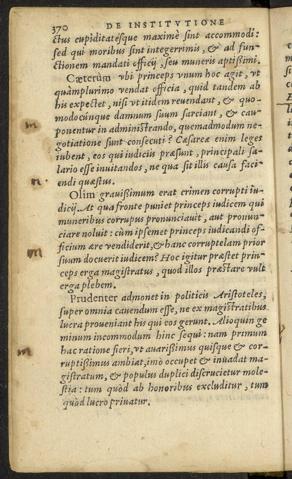 370 DE INSTITVTIONE
ctus cupiditatésque maximè sint accommodi:
sed qui moribus sint integerrimis, & ad fun-
ctionem mandati officij, seu muneris aptißimi.
Cæterùm vbi princeps vnum hoc agit, vt
quàmplurimo vendat officia, quid tandem ab
his expectet, nisi vt itidem reuendant, & quo-
modocúnque damnum suum sarciant, & cau-
ponentur in administrando, quemadmodum ne-
gotiatione sunt consecuti? Cæsareæ enim leget
iubent, eos qui iudiciis præsunt, principali sa-
lario esse inuitandos, ne qua sit illis causa faci-
endi quæstus.
Olim grauißimum erat crimen corrupti iu-
dicij. At qua fronte puniet princeps iudicem qui
muneribus corrupus pronunciauit, aut pronun-
ciare noluit: cùm ipsemet princeps iudicandi of-
ficium ære vendiderit, & hanc corruptelam prior
suum docuerit iudicem? Hoc igitur præstet prin-
ceps erga magistratus, quod illos præstare vult
erga plebem.
Prudenter admonet in politicis Aristoteles,
super omnia cauendum esse, ne ex magistratibus
lucra proueniant his qui eos gerunt. Alioquin ge
minum incommodum hinc sequi: nam primum
hac ratione fieri, vt auarißimus quisque & cor-
ruptißimus ambiat, imò occupet & inuadat ma-
gistratum, & populus duplici discrucietur mole-
stia: tum quòd ab honoribus excluditur, tum
quòd lucro priuatur.